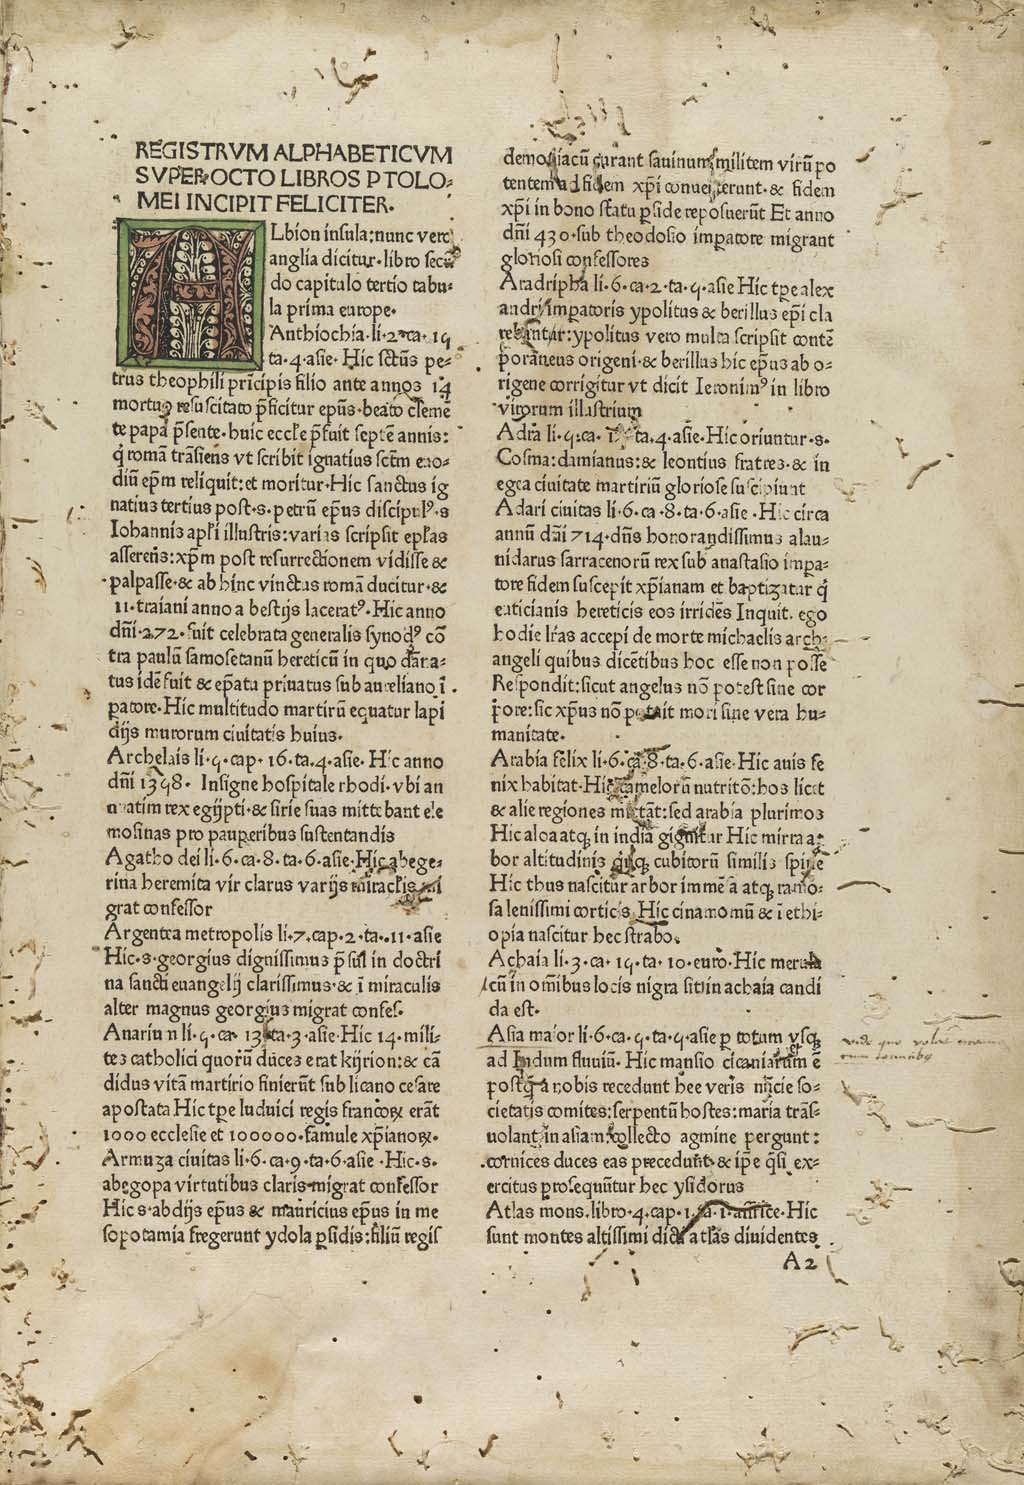 REGISTRVM ALPHABETICVM
SVPER OCTO LIBROS PTOLO⸗
MEI INCIPIT FELICITER.
ALbion insula: nunc vero
anglia dicitur. libro secū
do capitulo tertio tabu⸗
la prima europe.
Anthiochia. li. 2. ca. 15
ta. 4. asie. Hic sctūs pe⸗
trus theophili prīcipis filio ante annos 14
mortuo resuscitato p̄ficitur epūs. beato clemē
te papa p̄sente. huic eccl'e p̄fuit septē annis:
q̇ romā trāsiens vt scribit ignatius sctm̄ euo⸗
diū ep̄m reliquit: et moritur. Hic sanctus ig
natius tertius post .s. petrū epūs discipulꝰ .s
Iohannis apl'i illustris: varias scripsit epl'as
asserens: xp̄m post resurrectionem vidisse &
palpasse. & ab hinc vinctus romā ducitur. &
11. traiani anno a bestijs laceratꝰ. Hic anno
dn̄i .272. fuit celebrata generalis synodꝰ cō
tra paulū samosetanū hereticū in quo dāna⸗
tus idē fuit & ep̄atu priuatus sub aureliano ī
ꝑatore. Hic multitudo martirū equatur lapi
dijs murorum ciuitatis huius.
Archelais li. 5. cap. 16. ta. 4. asie. Hic anno
dn̄i 1398. Insigne hospitale rhodi. vbi an
nuatim rex egijpti. & sirie suas mittebant ele
mosinas pro pauperibus sustentandis
Agatho dei li. 6. ca. 8. ta. 6. asie. Hic abege⸗
rina heremita vir clarus varijs miraclis mi
grat confessor
Argentea metropolis li. 7. cap. 2. ta. 11. asie
Hic .s. georgius dignissimus p̄sul in doctri
na sancti euangelij clarissimus. & ī miraculis
alter magnus georgius migrat confes.
Anariun li. 5. ca. 13. ta. 3. asie. Hic 14. mili⸗
tes catholici quorū duces erāt kijrion: & cā
didus vitā martirio finierūt sub licano cesare
apostata Hic tpe luduici regis francoꝝ erāt
1000 ecclesie et 100000. famule xp̄ianoꝝ.
Armuza ciuitas li. 6. ca. 9. ta. 6. asie. Hic .s.
abegopa virtutibus claris migrat confessor
Hic s. abdijs epūs & mauricius epūs in me
sopotamia fregerunt ydola ꝑsidis: filiū regis
demoniacū curant sauinum militem virū po
tentem ad fidem xp̄i conuerterunt. & fidem
xp̄i in bono statu ꝑside reposuerūt Et anno
dn̄i 430. sub theodosio imperatore migrant
gloriosi confessores
Aradripha li. 6. ca. 2. ta. 5. asie Hic tpe alex
andri imꝑatoris ypolitus & berillus ep̄i cla
rebantur: ypolitus vero multa scripsit contē
poraneus origeni. & berillus hic epūs ab o⸗
rigene corrigitur vt dicit Ieronimꝰ in libro
virorum illustrium
Adra li. 5. ca. ta. 4. asie. Hic oriuntur .s.
Cosma: damianus: & leontius fratres. & in
egea ciuitate martiriū gloriose suscipiunt
Adari ciuitas li. 6. ca. 8. ta. 6. asie. Hic circa
annū dn̄i 714. dn̄s honorandissimus alau⸗
nidarus sarracenorū rex sub anastasio impa⸗
tore fidem suscepit xp̄ianam et baptizatur q̇
euticianis hereticis eos irridēs Inquit. ego
hodie lr̄as accepi de morte michaelis arch⸗
angeli quibus dicētibus hoc esse non posse
Respondit: sicut angelus nō potest sine cor
pore: sic xp̄us nō potuit mori sine vera hu⸗
manitate.
Arabia felix li. 6. ca. 8. ta. 6. asie. Hic auis fe
nix habitat. Hic camelorū nutritō: hos licet
& alie regiones mittāt: sed arabia plurimos
Hic aloa atqꝫ in india gignitur Hic mirra ar
bor altitudinis quīqꝫ cubitorū similis spine
Hic thus nascitur arbor immēsa atqꝫ ramo⸗
sa lenissimi corticis Hic cinamomū & ī ethi⸗
opia nascitur hec strabo.
Achaia li. 3. ca. 15. ta. 10. euro. Hic merula
cū in om̄ibus locis nigra sit in achaia candi
da est.
Asia maior li. 6. ca. 5. ta. 5. asie ꝑ totum vsqꝫ
ad Indum fluuiū. Hic mansio ciconiarum ē
postq̄ a nobis recedunt hee veris nūcie so⸗
cietatis comites: serpentū hostes: maria trās⸗
uolant in asiam collecto agmine pergunt:
cornices duces eas precedunt. & ip̄e q̄si ex⸗
ercitus prosequūtur hec ysidorus
Atlas mons. libro. 4. cap. 1. ta. 1. affrice. Hic
sunt montes altissimi dicti atlas diuidentes
A2